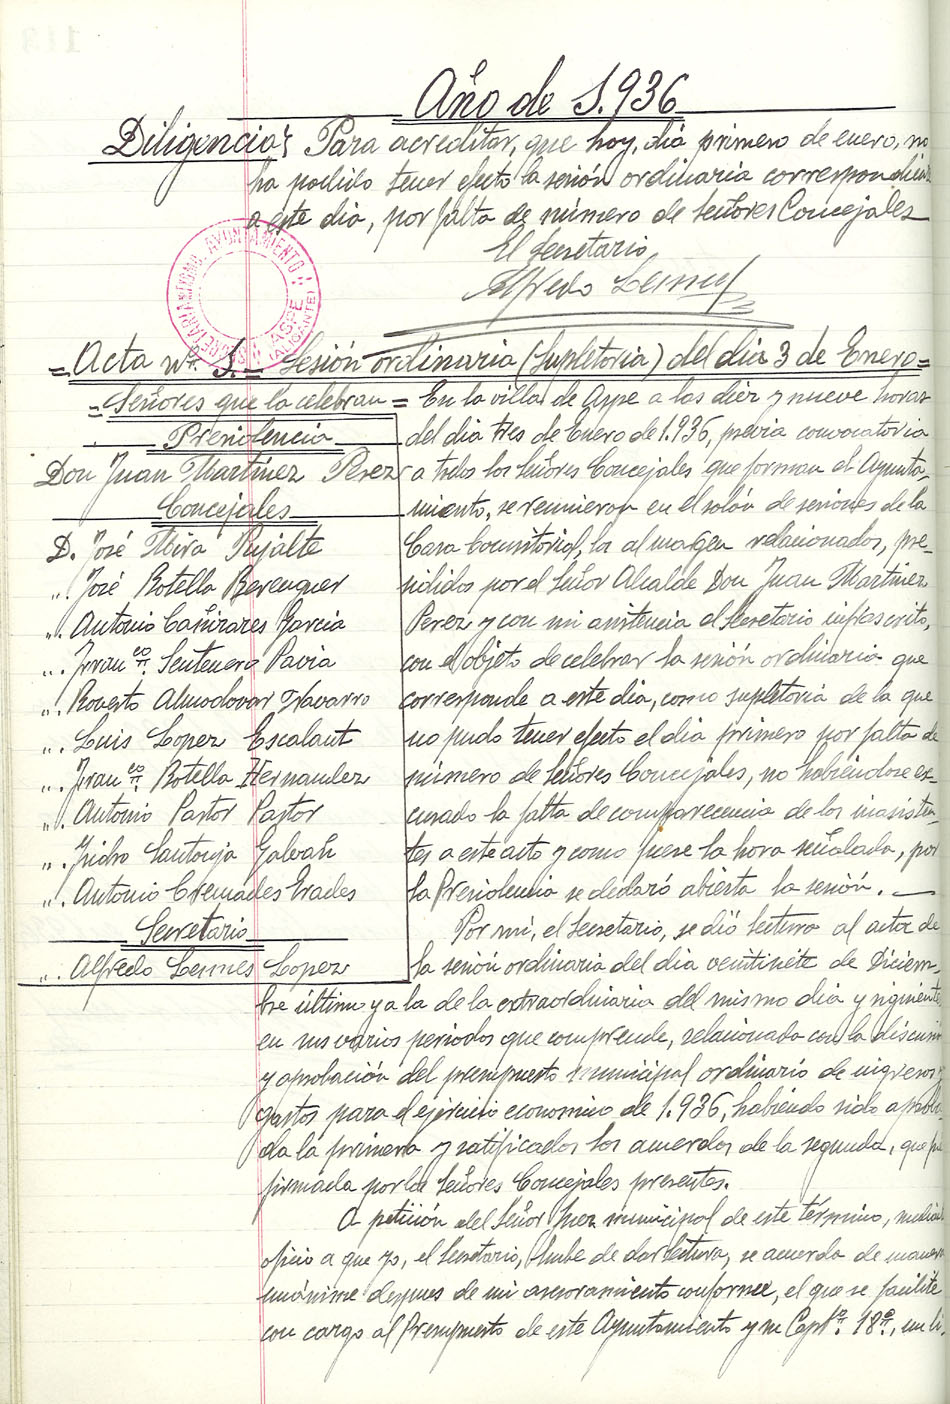 Año de 1.936
Diligencia: Para acreditar, que hoy, dia primero de enero, no
ha podido tener efecto la sesión ordinaria correspondiente
a este dia, por falta de número de señores Concejales
El Secretario,
Alfredo
SECRETARIA MTMO. AYUNTAMIENTO
ASPE
(ALICANTE)
=Acta nº. 1.= Sesión ordinaria (Supletoria) del dia 3 de Enero=
=Señores que la celebran=
Presidencia
Don Juan Martinez Perez
Concejales
D. José Mira Pujalte
„. José Botella Berenguer
„. Antonio Cañizares Garcia
„. Franco. Sentenero Pavia
„. Roberto Almodovar Navarro
„. Luis Lopez Escalant
„. Franco. Botella Hernandez
„. Antonio Pastor Pastor
„. Isidro Santonja Galvañ
„. Antonio Cremades Erades
Secretario
„. Alfredo Lopez
En la villa de Aspe a las diez y nueve horas
del dia tres de Enero de 1.936, previa convocatoria
a todos los Señores Concejales que forman el Ayunta-
miento, se reunieron en el salón de sesiones de la
Casa Consistorial, los al margen relacionados, pre-
sididos por el Señor Alcalde Don Juan Martinez
Perez y con mi asistencia el Secretario infrascrito,
con el objeto de celebrar la sesión ordinaria que
corresponde a este dia, como supletoria de la que
no pudo tener efecto el dia primero por falta de
número de Señores Concejales, no habiéndose ex-
cusado la falta de comparecencia de los inasisten-
tes a este acto y como fuese la hora señalada, por
la Presidencia se declaró abierta la sesión. —
Por mi, el Secretario, se dió lectura al acta de
la sesión ordinaria del dia veintisiete de Diciem-
bre último y a la de la extraordinaria del mismo dia y siguientes
en sus varios periodos que comprende, relacionada con la discusión
y aprobación del presupuesto municipal ordinario de ingresos y
gastos para el ejercicio economico de 1.936, habiendo sido aproba-
da la primera y ratificados los acuerdos de la segunda, que fue
firmada por los Señores Concejales presentes.
A petición del Señor Juez municipal de este término, mediante
oficio a que yo, el Secretario, hube de dar lectura, se acuerda de manera
unánime despues de mi asesoramiento conforme, el que se facilite
con cargo al Presupuesto de este Ayuntamiento y su Capto. 18º., un li-